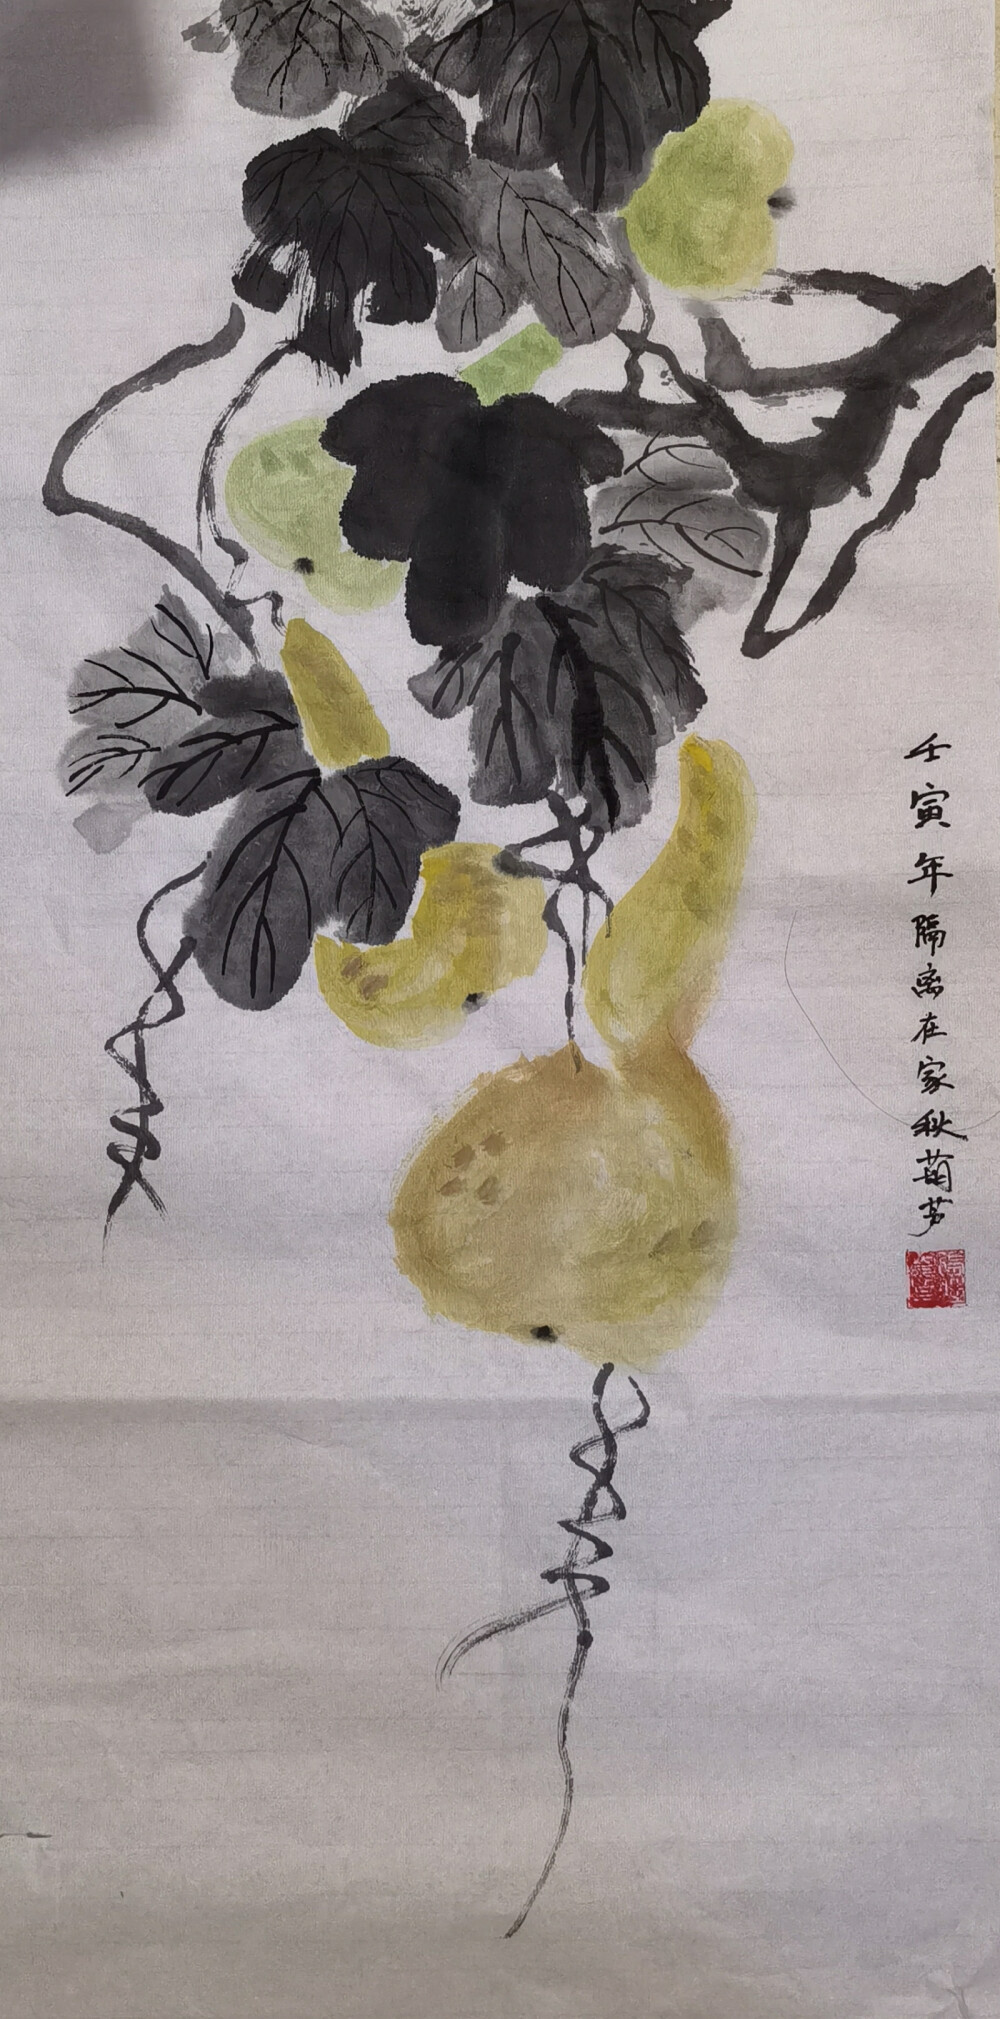 壬寅年隔离在家秋葫芦